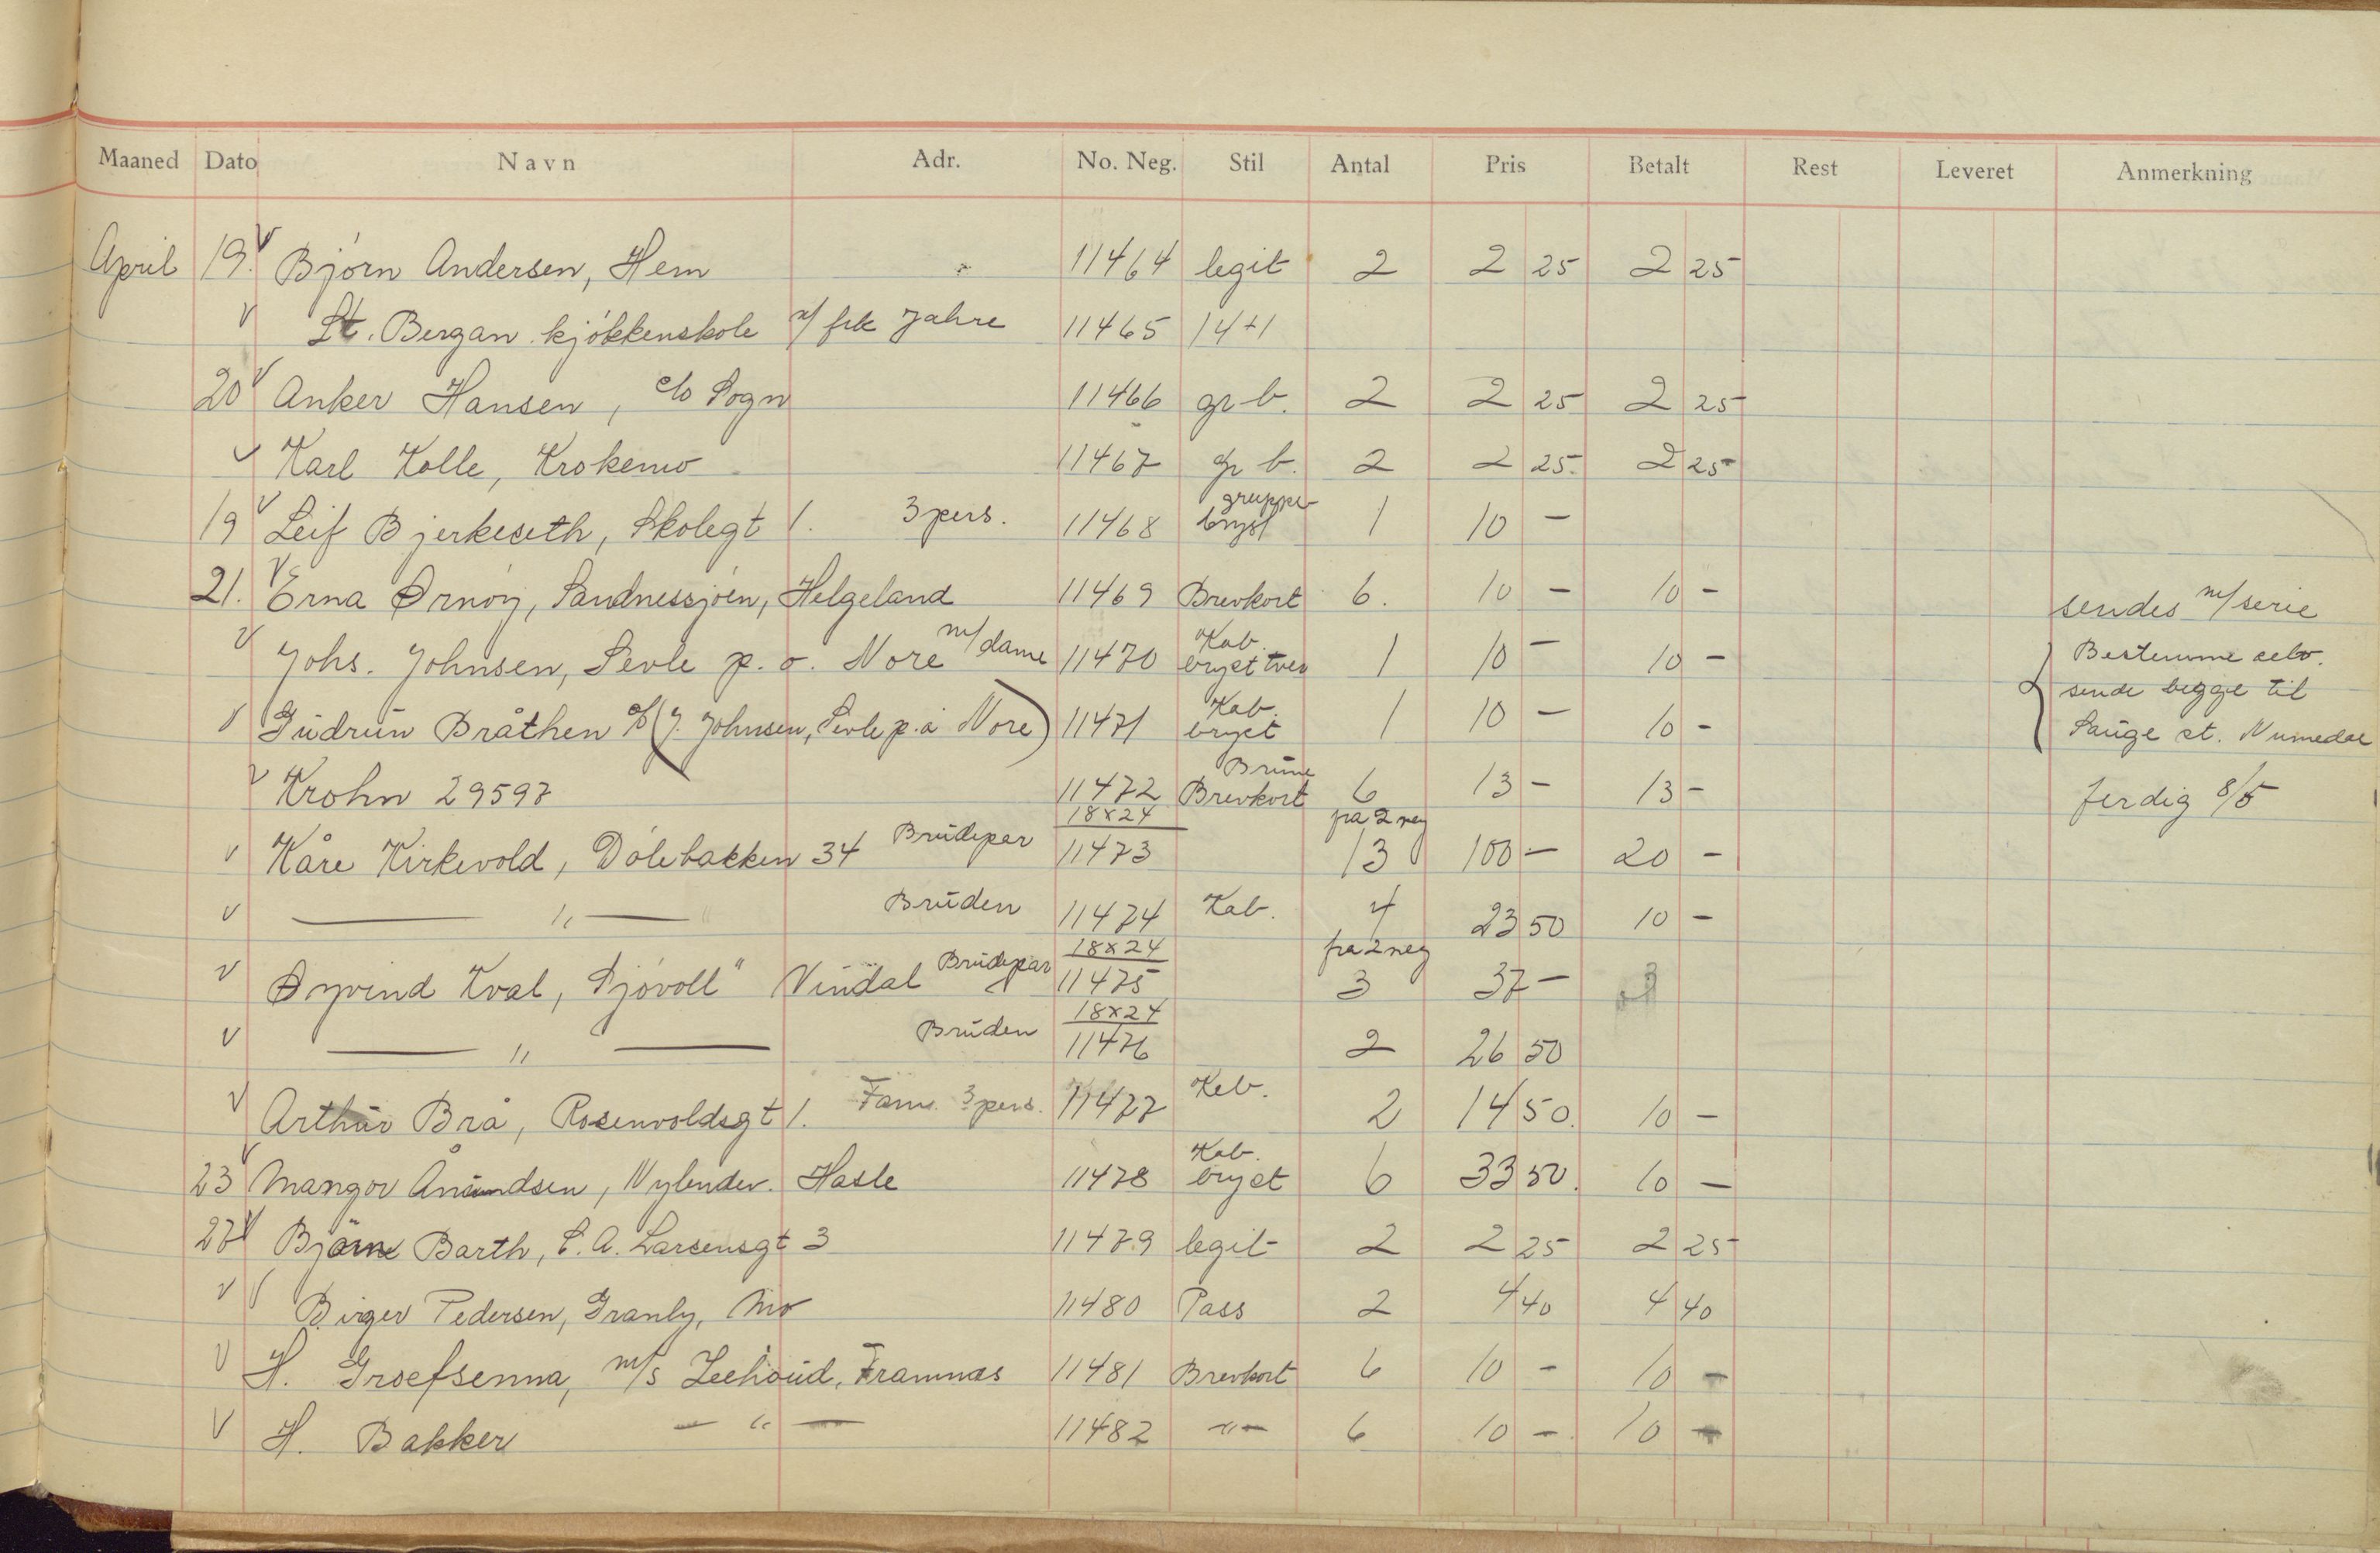 Maaned Dato Navn Adr. No. Neg. Stil Antal Pris Betalt Rest Leveret Anmerkning
April 19. Bjørn Andersen, Hem 11464 legit 2 2 25 2 25
St. Bergan kjøkkenskole m/ frk Jahre 11465 14+1
20 Anker Hansen, c/o Sogn 11466 gr b. 2 2 25 2 25
Karl Kolle, Krokemo 11467 gr b. 2 2 25 2 25
19 Leif Bjerkeseth, Skolegt 1. 3 pers. 11468 gruppe bryst 1 10 -
21. Erna Ørnøy, Sandnessjøen, Helgeland 11469 Brevkort 6. 10 - 10 - sendes m/ serie
Johs. Johnsen, Sevle p. o. Nore m/ dame 11470 Kab. bryst tver 1 10 - 10 - Bestemme selv.
sende begge til
Gudrun Bråthen c/o (J. Johnsen, Sevle p. å Nore) 11471 Kab. bryst 1 10 - 10 - Sauge st. Numedal
Krohn 29597 11472 Brune Brevkort 6 13 - 13 - ferdig 8/5
Kåre Kirkevold, Dølebakken 34 Brudepar 18x24 11473 fra 2 neg 13 100 - 20 -
— " — Bruden 11474 Kab. 4 23 50 10 -
Øyvind Kval, Sjøvoll" Vindal Brudepar 18x24 11475 fra 2 neg 3 37 -
— " — Bruden 18x24 11476 2 26 50
Arthur Brå, Rosenvoldsgt 1. Fam. 3 pers. 11477 Kab. 2 14 50. 10 -
23 Mangor Amundsen, Nylendev. Hasle 11478 Kab. bryst 6 33 50. 10 -
27 Bjørn Barth, C. A. Larsensgt 3 11479 legit 2 2 25 2 25
Birger Pedersen, Granly, Mo 11480 Pass 2 4 40 4 40
H. Groefsenna, m/s Zeehoud, Framnæs 11481 Brevkort 6 10 - 10 -
H. Bakker — " — 11482 -"- 6 10 - 10 -